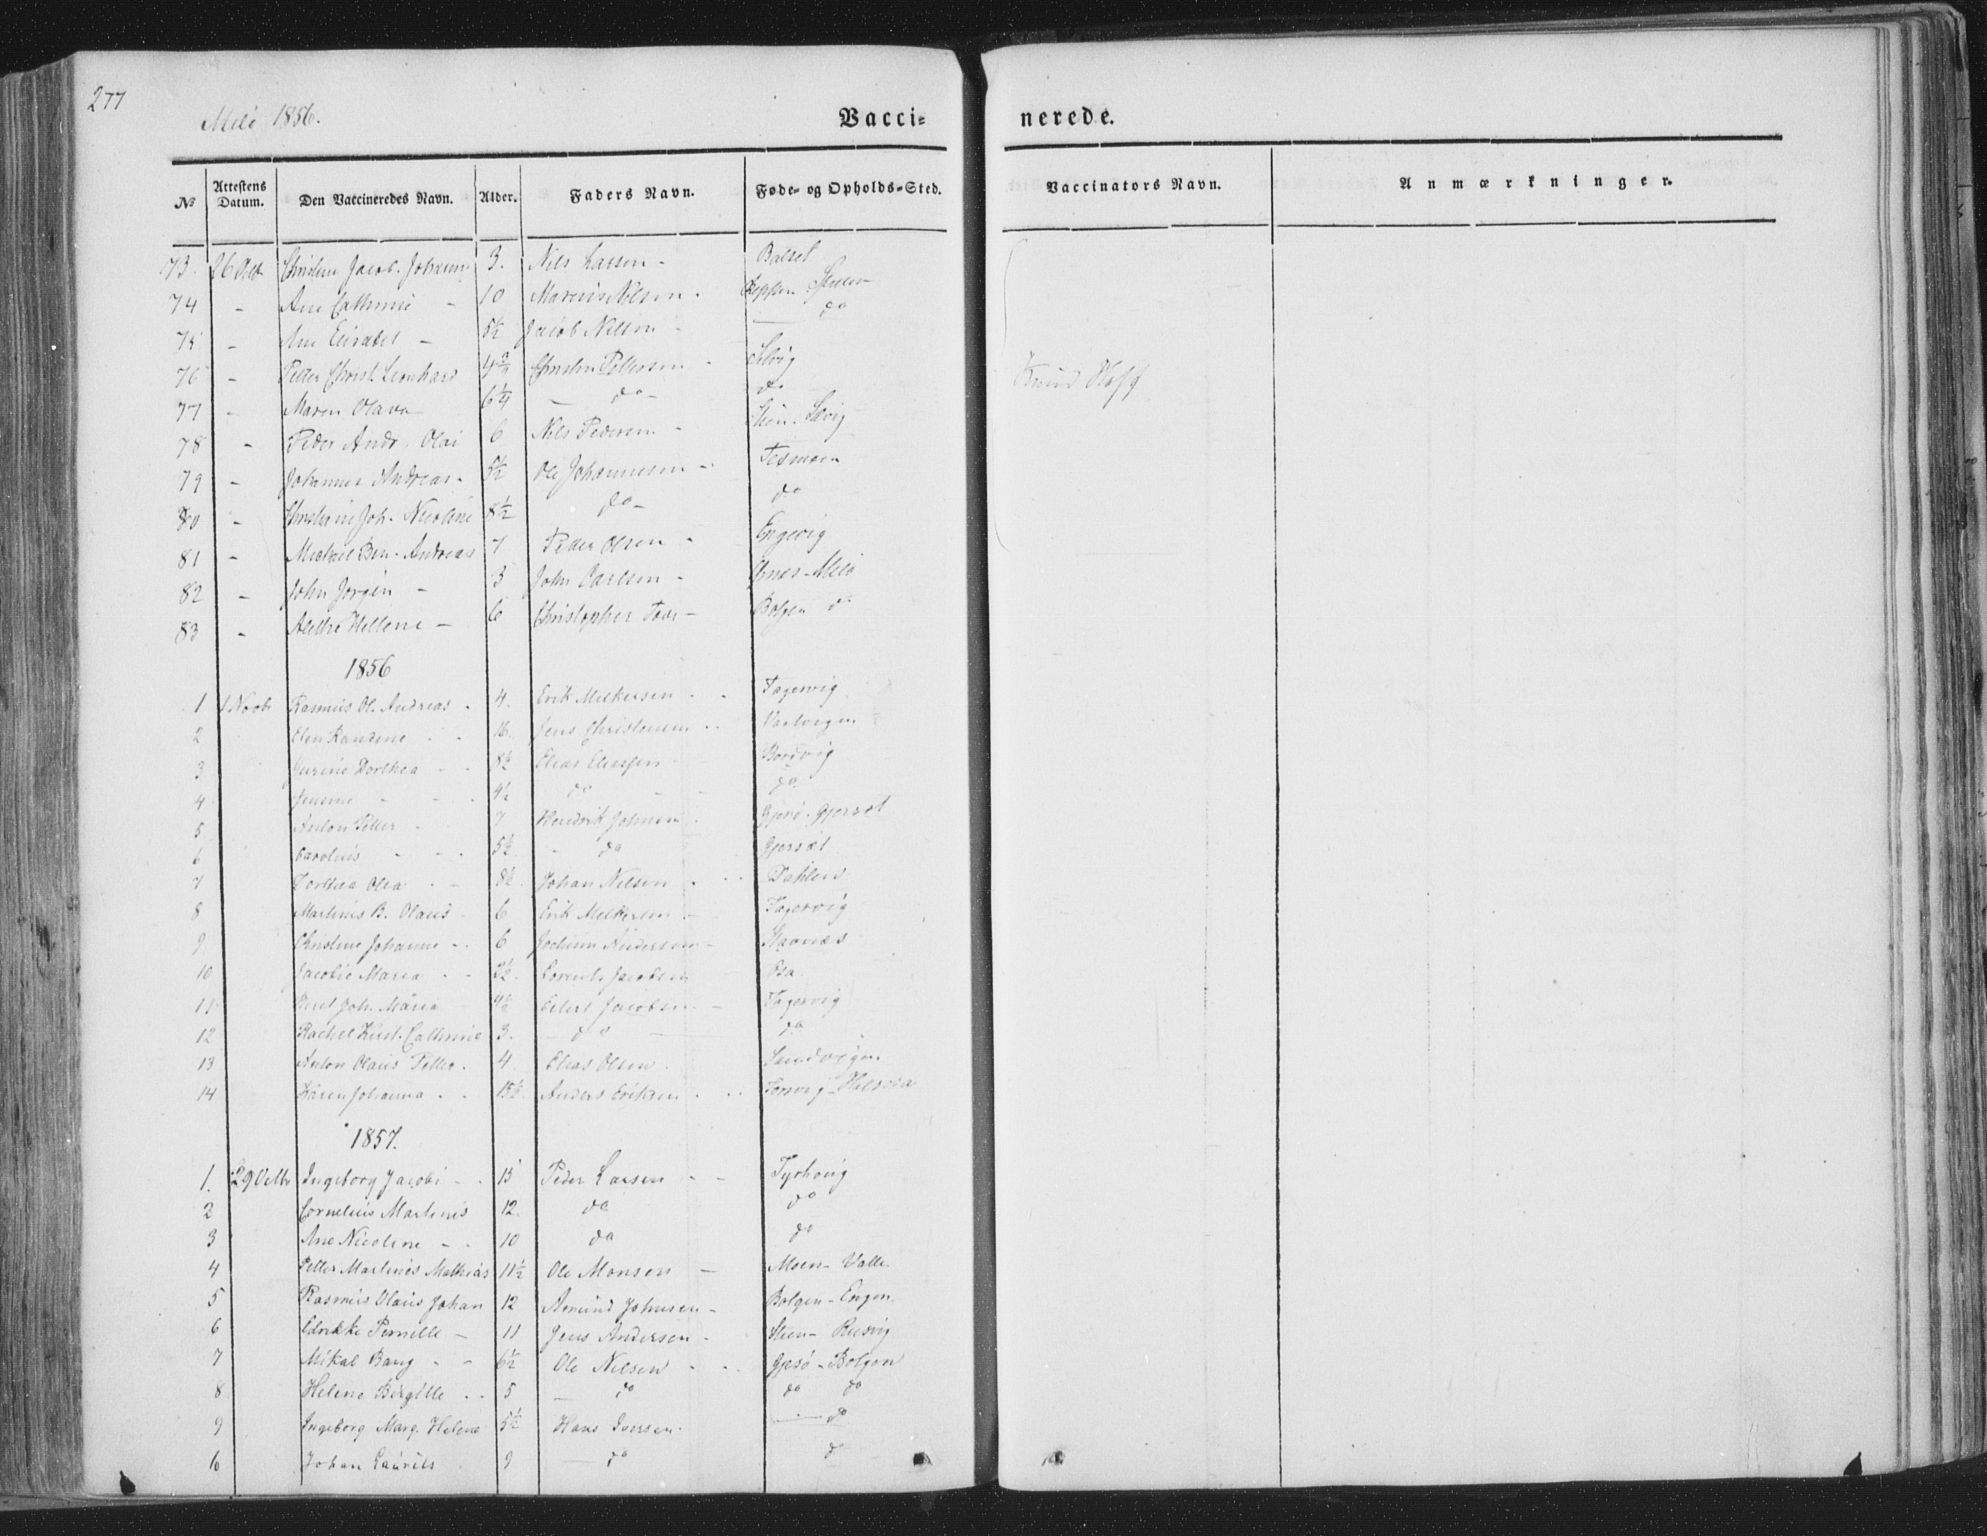 277
Melö 1856.
Vacci-
nerede.
№ Attestens Datum. Den Vaccineredes Navn. Alder. Faders Navn. Føde- og Opholds-Sted. Vaccinators Navn. Anmærkninger.
73. 26 Oct Christine Jacob. Johann 3. Nils Larsen - Balset
74 - Ane Cathrine - 10 Marcus Nilsen - Stuen
75 - Ane Elisabet - 5½ Jacob Nilsen - do
76 - Petter Christ. Leonhard 4¾ Christen Pettersen - Selvig
77 - Maren Olava 6¼ - do - do
78 - Peder Andr. Olai 6 Nils Pedersen - Stien - Selvig
79 - Johannes Andreas - 5½ Ole Johannesen - Tesmoen
80 - Christine Joh. Nicoline 8½ do - do
81 - Michael Ben. Andreas 7 Peder Olsen - Engevig
82 - John Jörgen - 3 John Carlsen - Melö
83 - Alethe Hellene - 6 Christopher - Bolgen do
Knud
1856
1 1 Novbr Rasmus Ol. Andreas - 4. Erik Melkersen - - Fagervig
2 Elen Randine - - 16. Jens Christensen - -
3 Jurine Dorthea - - 8½ Elias Eliassen - Bordvig
4 Jensine - - - 4½ do - - do
5 Anton Petter - 7 Hendrik Johnsen - Gjersæt
6 Carolius - - - 5½ - do Gjersæt
7 Dorthea Olea - - 8½ Johan Nilsen - - - Dahlen
8 Martinus B. Olaus - 6 Erik Melkersen - Fagervig
9 Christine Johanne - - 6 Jochum Andersen - Stavnæs
10 Jacobie Maria - - 2½ Cornels Jacobsen Osa
11 Joh. Maria 4½ Eilert Jacobsen - - Fagervig
12 Rachel Kirst. Cathrine 3. - do - do
13 Anton Olaus Petter. 4. Elias Olsen. Sandvigen
14 Karen Johanna - - 15½ Anders Eriksen - - - Halsöia
1857.
1. 29 Octbr Ingeborg Jacobi - - 15 Peder Larsen - - Tychovig
2 Cornelius Martinus 12. do do
3 Ane Nicoline - - 10 do do
4 Petter Martinus Mathias 11½ Ole Monsen - Moen - Valle
5 Rasmus Olaus Johan 12 Amund Johnsen - Bolgen - Engen.
6 Edrikke Pernille - 11 Jens Andersen - Stien - Reisvig
7 Mikal Bang - - 6½ Ole Nilsen - - - Gjesö - Bolgen
8 Helene Birgitte - - 5 - do do do
9 Ingeborg Marg. Helene 5½ Hans Iversen. - do
10 Johan Laurits 9 - do do